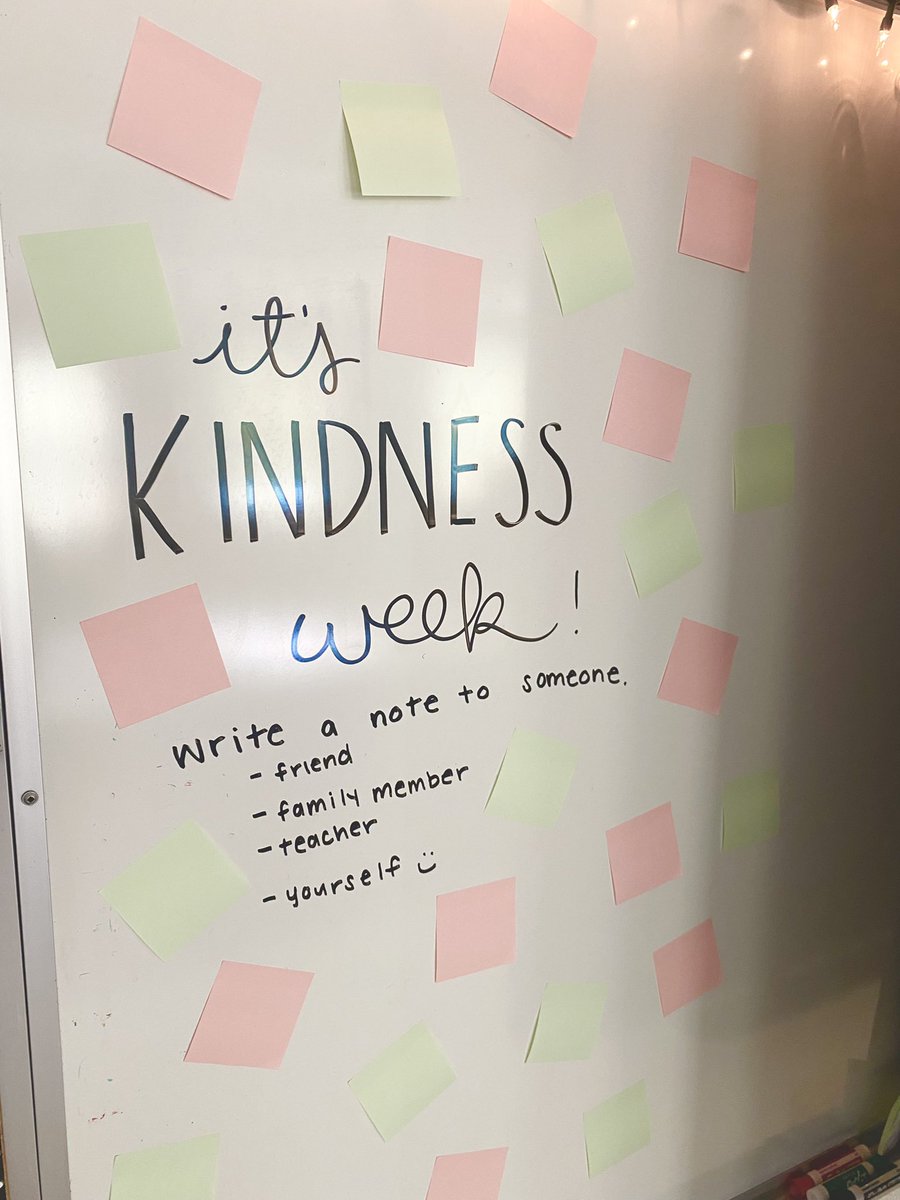 it's
KINDNESS
week!
Write a note to someone.
- friend
- family member
- teacher
- yourself